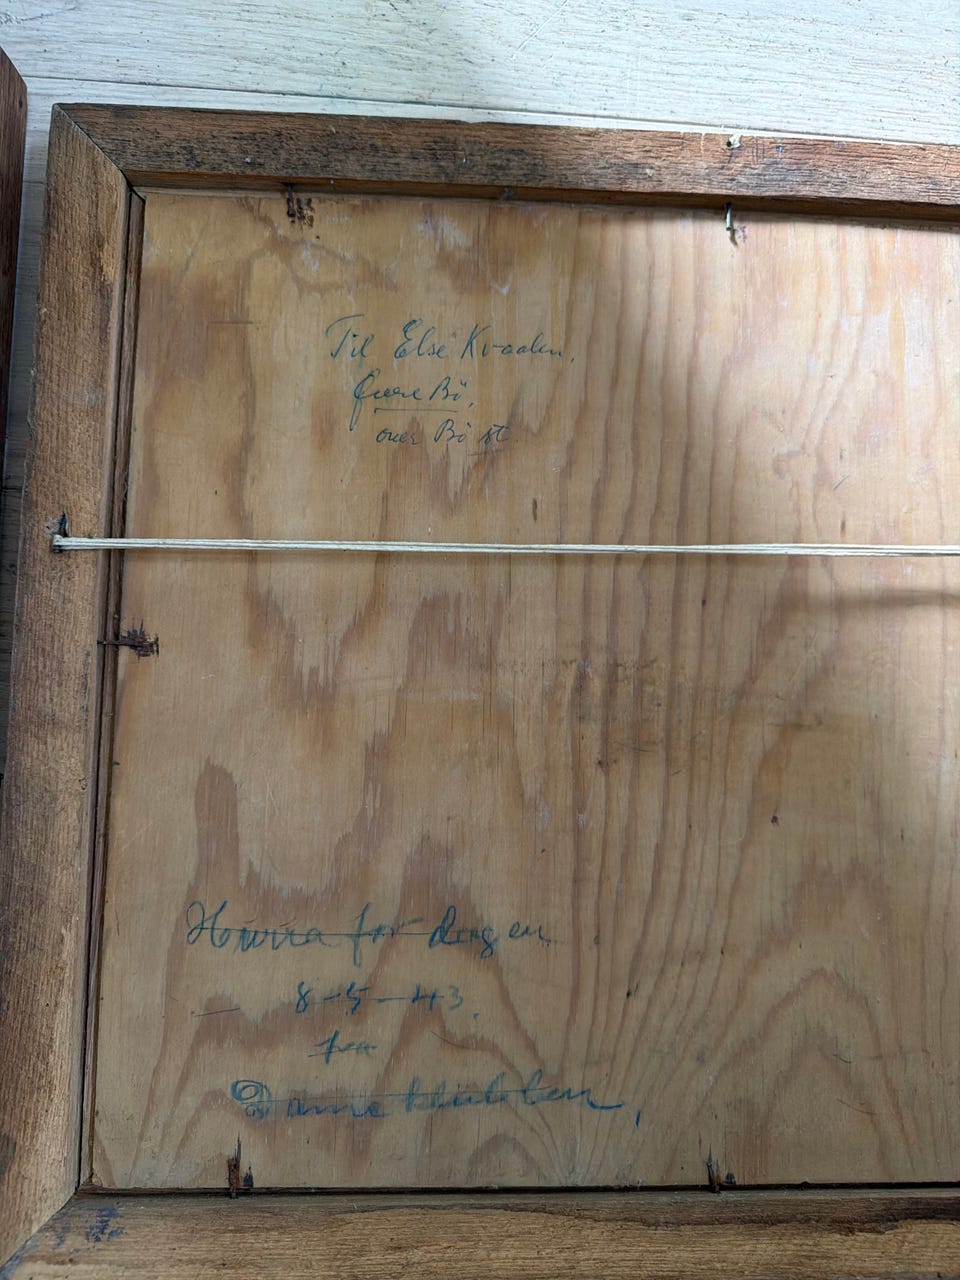 Til Else Kvaalen,
Øvre Bö,
over Bö st.
Hurra for dagen
8-5-43.
fra
Dame klubben,